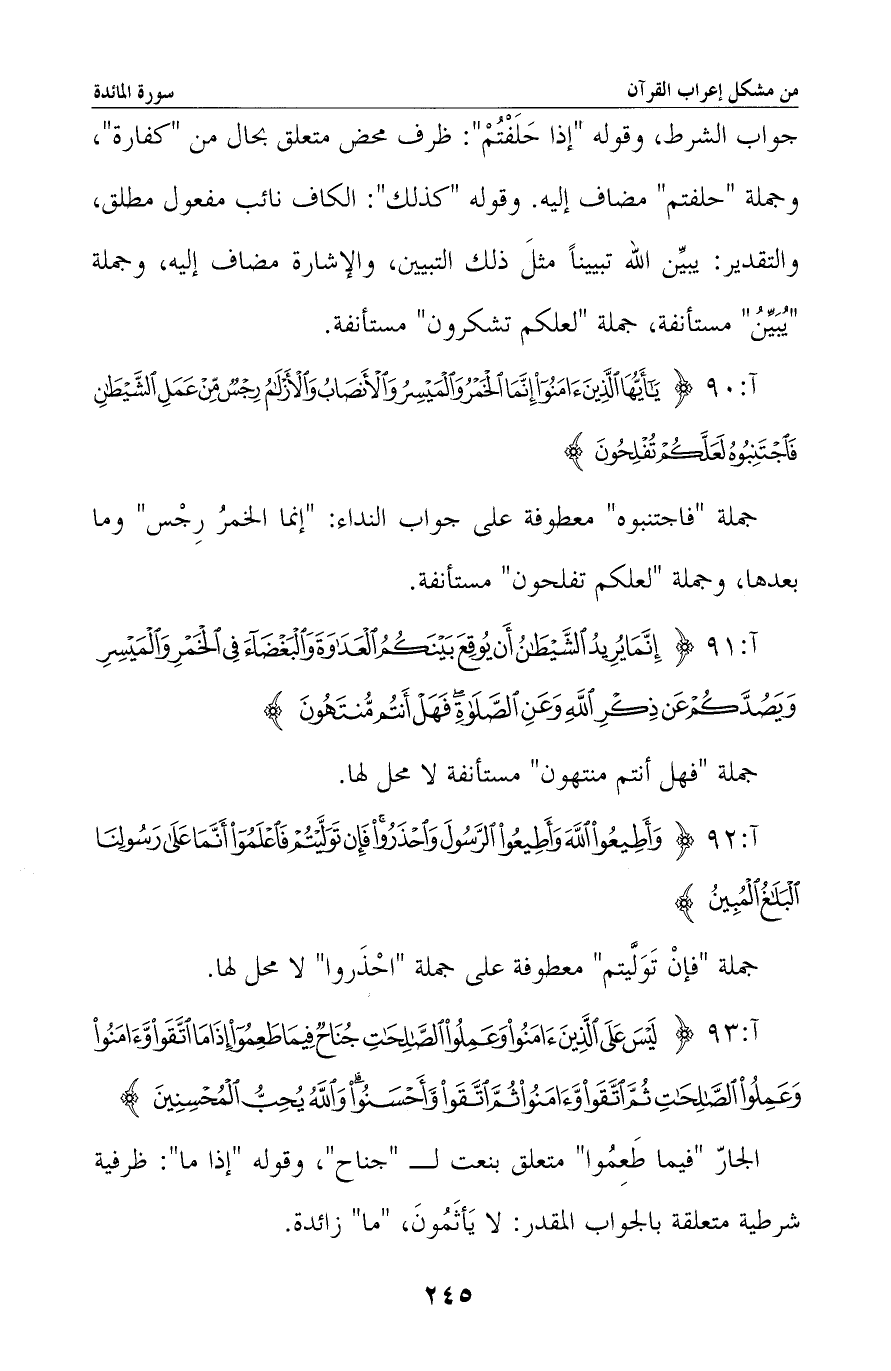 من مشكل إعراب القرآن سورة المائدة
جواب الشرط، وقوله "إذا حَلَفْتُمْ": ظرف محض متعلق بحال من "كفارة"،
وجملة "حلفتم" مضاف إليه. وقوله "كذلك": الكاف نائب مفعول مطلق،
والتقدير: يبيِّن الله تبييناً مثلَ ذلك التبيين، والإشارة مضاف إليه، وجملة
"يُبَيِّنُ" مستأنفة، جملة "لعلكم تشكرون" مستأنفة.
آ:٩٠ ﴿ يَٰٓأَيُّهَا ٱلَّذِينَ ءَامَنُوٓا۟ إِنَّمَا ٱلْخَمْرُ وَٱلْمَيْسِرُ وَٱلْأَنصَابُ وَٱلْأَزْلَٰمُ رِجْسٌ مِّنْ عَمَلِ ٱلشَّيْطَٰنِ
فَٱجْتَنِبُوهُ لَعَلَّكُمْ تُفْلِحُونَ ﴾
جملة "فاجتنبوه" معطوفة على جواب النداء: "إنما الخمرُ رِجْس" وما
بعدها، وجملة "لعلكم تفلحون" مستأنفة.
آ:٩١ ﴿ إِنَّمَا يُرِيدُ ٱلشَّيْطَٰنُ أَن يُوقِعَ بَيْنَكُمُ ٱلْعَدَٰوَةَ وَٱلْبَغْضَآءَ فِى ٱلْخَمْرِ وَٱلْمَيْسِرِ
وَيَصُدَّكُمْ عَن ذِكْرِ ٱللَّهِ وَعَنِ ٱلصَّلَوٰةِ ۖ فَهَلْ أَنتُم مُّنتَهُونَ ﴾
جملة "فهل أنتم منتهون" مستأنفة لا محل لها.
آ:٩٢ ﴿ وَأَطِيعُوا۟ ٱللَّهَ وَأَطِيعُوا۟ ٱلرَّسُولَ وَٱحْذَرُوا۟ ۚ فَإِن تَوَلَّيْتُمْ فَٱعْلَمُوٓا۟ أَنَّمَا عَلَىٰ رَسُولِنَا
ٱلْبَلَٰغُ ٱلْمُبِينُ ﴾
جملة "فإنْ تَوَلَّيتم" معطوفة على جملة "احْذَروا" لا محل لها.
آ:٩٣ ﴿ لَيْسَ عَلَى ٱلَّذِينَ ءَامَنُوا۟ وَعَمِلُوا۟ ٱلصَّٰلِحَٰتِ جُنَاحٌ فِيمَا طَعِمُوٓا۟ إِذَا مَا ٱتَّقَوا۟ وَّءَامَنُوا۟
وَعَمِلُوا۟ ٱلصَّٰلِحَٰتِ ثُمَّ ٱتَّقَوا۟ وَّءَامَنُوا۟ ثُمَّ ٱتَّقَوا۟ وَّأَحْسَنُوا۟ ۗ وَٱللَّهُ يُحِبُّ ٱلْمُحْسِنِينَ ﴾
الجارّ "فيما طَعِمُوا" متعلق بنعت لـــ "جناح"، وقوله "إذا ما": ظرفية
شرطية متعلقة بالجواب المقدر: لا يَأثَمُونَ، "ما" زائدة.
٢٤٥